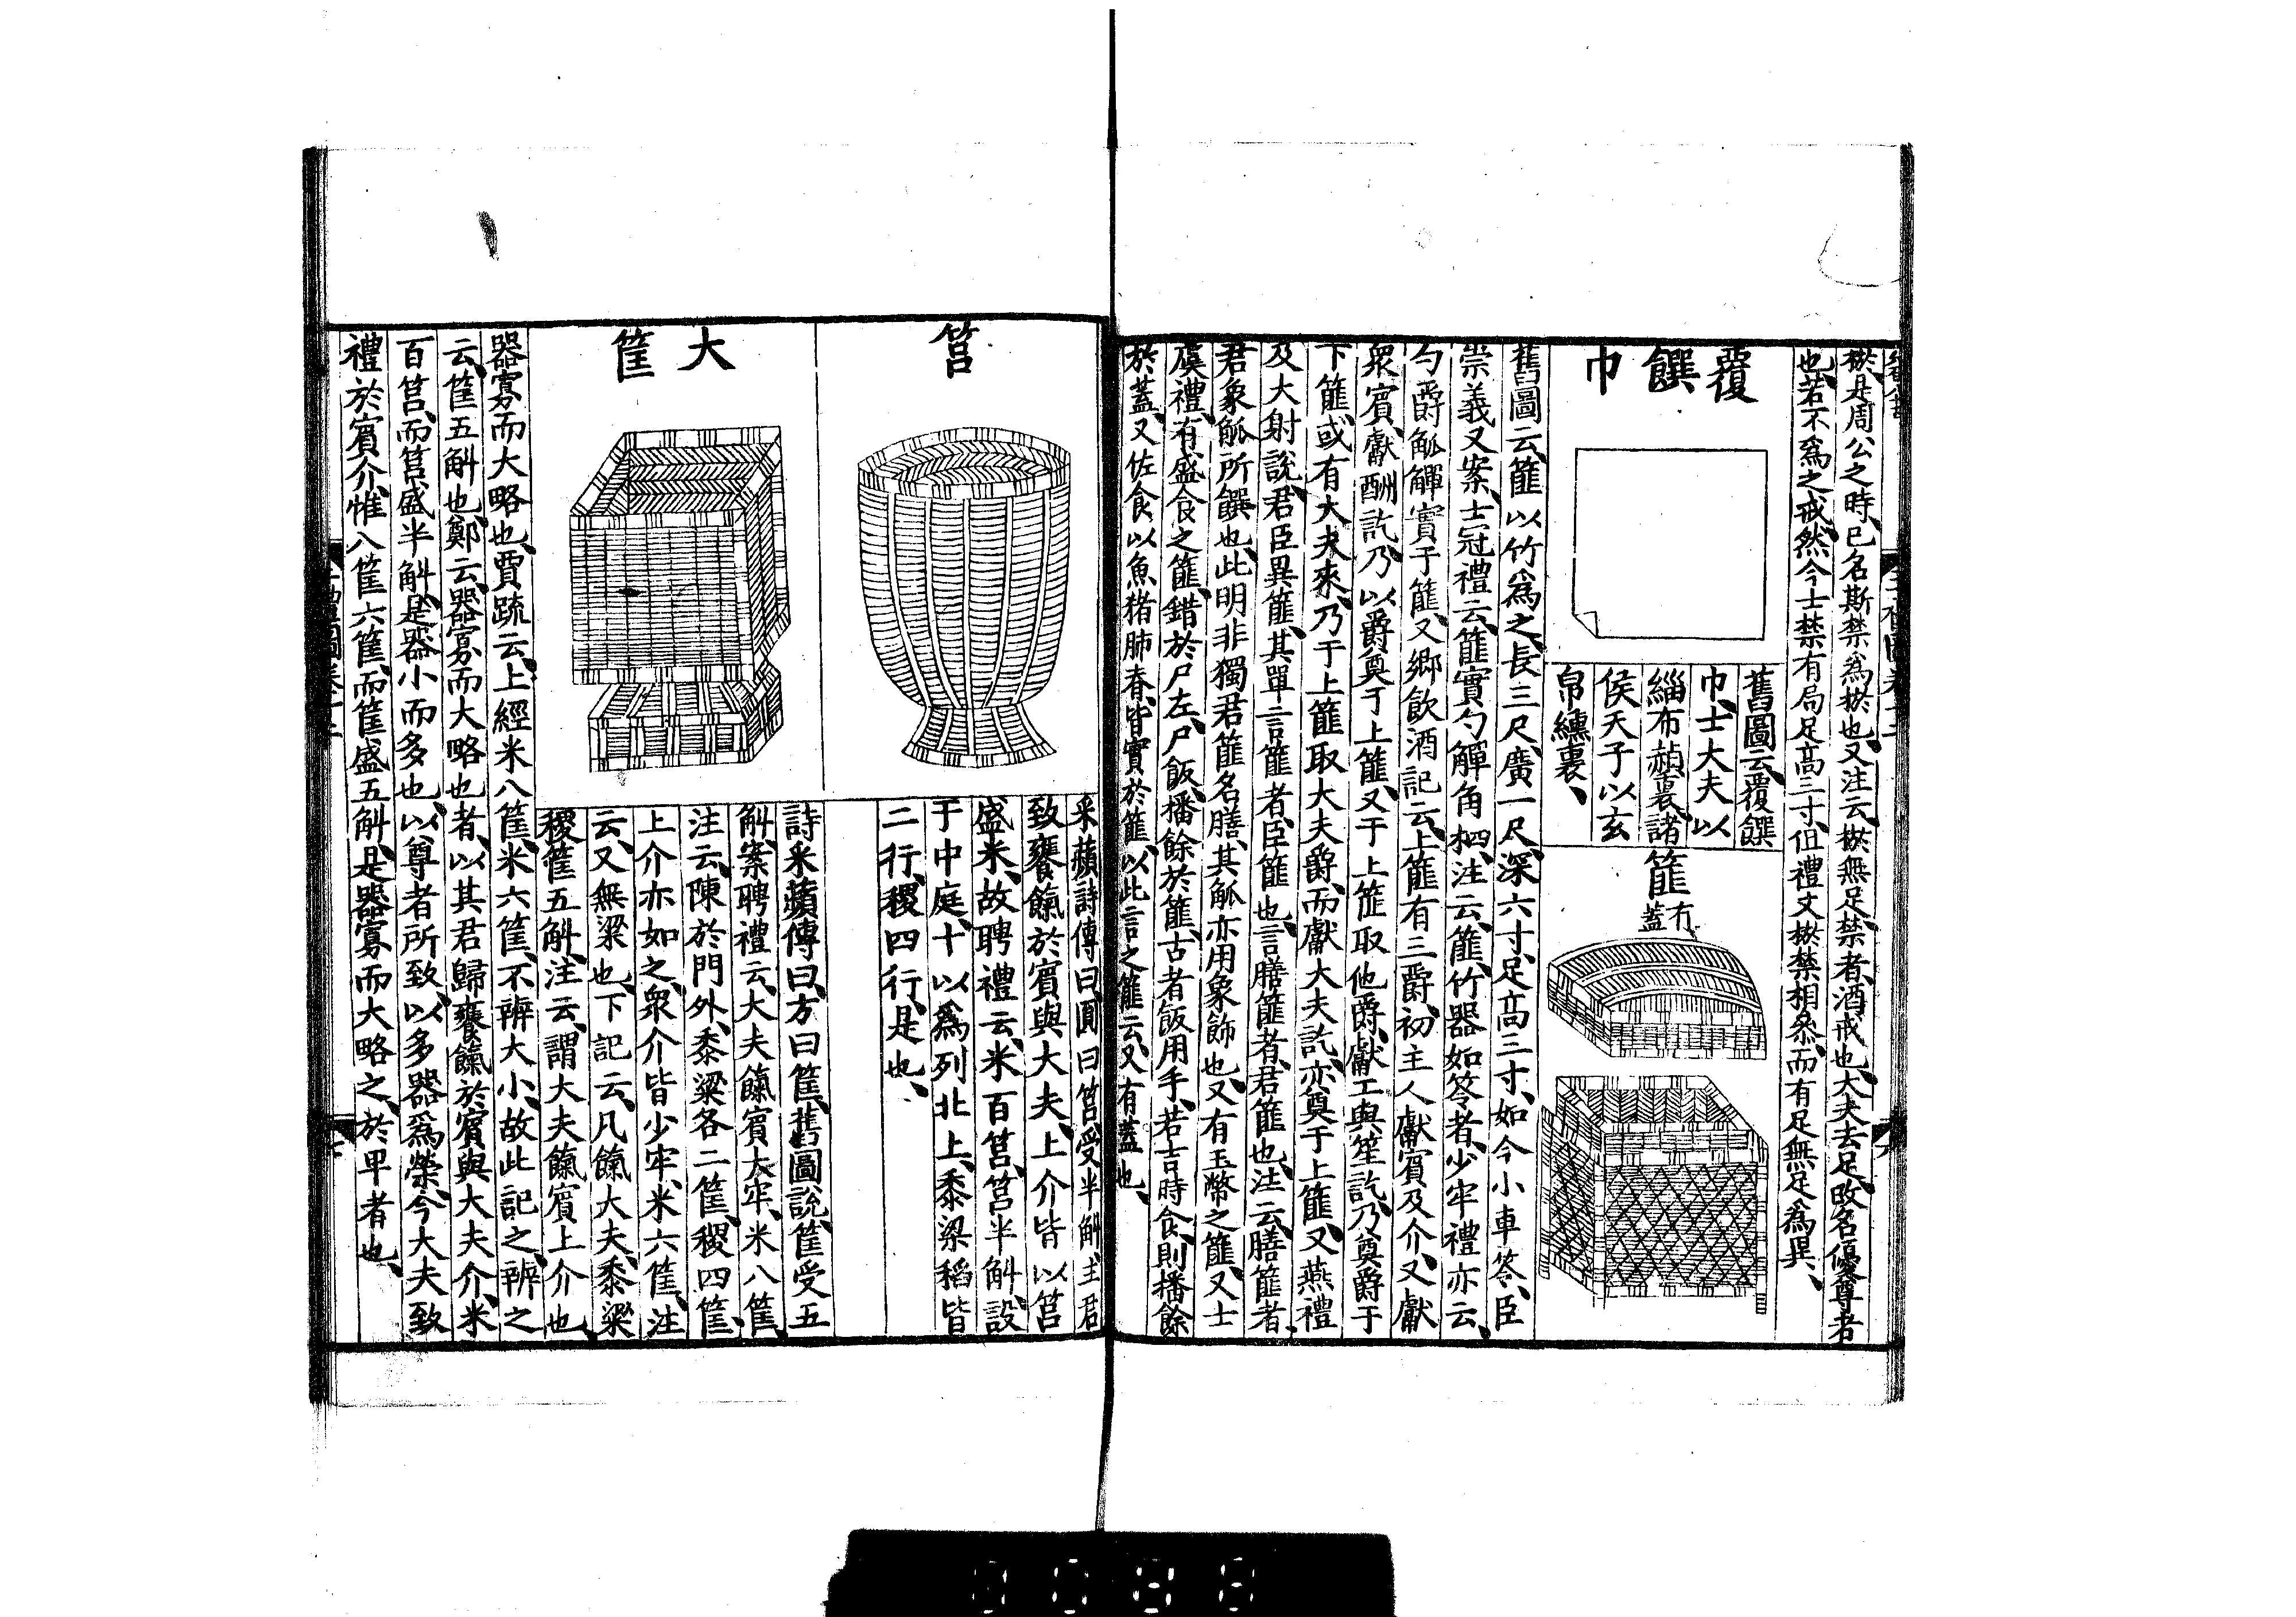 棜是周公之時、已名斯禁爲棜也、又注云、棜無足、禁者、酒戒也、大夫去足、改名優尊者
也、若不爲之戒、然今士禁有局足高三寸、但禮文棜禁相叅、而有足無足爲異、
覆饌巾
舊圖云、覆饌
巾、士大夫以
緇布赬裏、諸
侯天子以玄
帛纁裏、
篚有蓋
舊圖云、篚以竹爲之、長三尺、廣一尺、深六寸、足高三寸、如今小車笭、臣
崇義又案、士冠禮云、篚實勺觶角柶、注云、篚、竹器如笭者、少牢禮亦云、
勺爵觚觶實于篚、又鄉飲酒記云、上篚有三爵、初主人獻賓及介、又獻
衆賓、獻酬訖、乃以爵奠于上篚、又于上篚取他爵、獻工與笙訖、乃奠爵于
下篚、或有大夫來、乃于上篚取大夫爵、而獻大夫訖、亦奠于上篚、又燕禮
及大射說、君臣異篚、其單言篚者、臣篚也、言膳篚者、君篚也、注云、膳篚者、
君象觚所饌也、此明非獨君篚名膳、其觚亦用象飾也、又有玉幣之篚、又士
虞禮、有盛食之篚、錯於尸左、尸飯、播餘於篚、古者飯用手、若吉時食、則播餘
於蓋、又佐食以魚猪肺脊、皆實於篚、以此言之篚云、又有蓋也、
筥
采蘋詩傳曰、圓曰筥、受半斛、主君
致饔餼於賓與大夫、上介皆以筥
盛米、故聘禮云、米百筥、筥半斛、設
于中庭、十以爲列北上、黍梁稻皆
二行、稷四行、是也、
大筐
詩采蘋傳曰、方曰筐、舊圖說、筐受五
斛、案聘禮云、大夫餼賓大牢、米八筐、
注云、陳於門外、黍粱各二筐、稷四筐、
上介亦如之、衆介皆少牢、米六筐、注
云、又無粱也、下記云、凡餼大夫、黍粱
稷筐五斛、注云、謂大夫餼賓上介也、
器寡而大略也、賈疏云、上經米八筐、米六筐、不辨大小、故此記之、辨之
云、筐五斛也、鄭云、器寡而大略也者、以其君歸饔餼於賓與大夫介、米
百筥、而筥盛半斛、是器小而多也、以尊者所致、以多器爲榮、今大夫致
禮於賓介、惟八筐六筐、而筐盛五斛、是器寡而大略之、於甲者也、